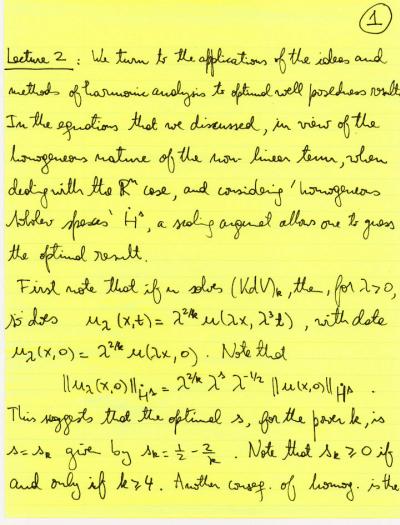 1
Lecture 2 : We turn to the applications of the ideas and
methods of harmonic analysis to optimal well posedness results
In the equations that we discussed, in view of the
homogeneous nature of the non linear term, when
dealing with the ℝⁿ case, and considering 'homogeneous
Sobolev spaces' Ḣˢ, a scaling argument allows one to guess
the optimal result.
First note that if u solves (KdV)ₖ, then, for λ>0,
so does u_λ(x,t) = λ^{2/k} u(λx, λ³t), with data
u_λ(x,0) = λ^{2/k} u(λx, 0). Note that
‖u_λ(x,0)‖_{Ḣˢ} = λ^{2/k} λˢ λ^{-1/2} ‖u(x,0)‖_{Ḣˢ} .
This suggests that the optimal s, for the power k, is
s = sₖ given by sₖ = 1/2 − 2/k . Note that sₖ ≥ 0 if
and only if k ≥ 4. Another conseq. of homog. is the